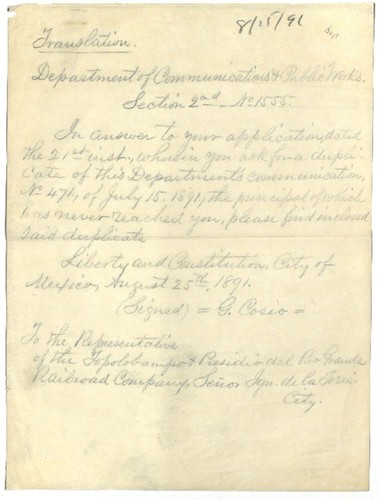 8/25/91
Translation.
Department of Communications & Public Works.
Section 2nd - No 1555.
In answer to your application, dated
the 21st inst., wherein you ask for a dupli-
cate of this Departments communication,
No 476, of July 15, 1891, the principal of which
has never reached you, please find inclosed
said duplicate
Liberty and Constitution, City of
Mexico, August 25th, 1891.
(Signed) = G. Cosio =
To the Representative
of the Topolobampo & Presidio del Rio Grande
Railroad Company, Señor Ign. de la Torre
City.